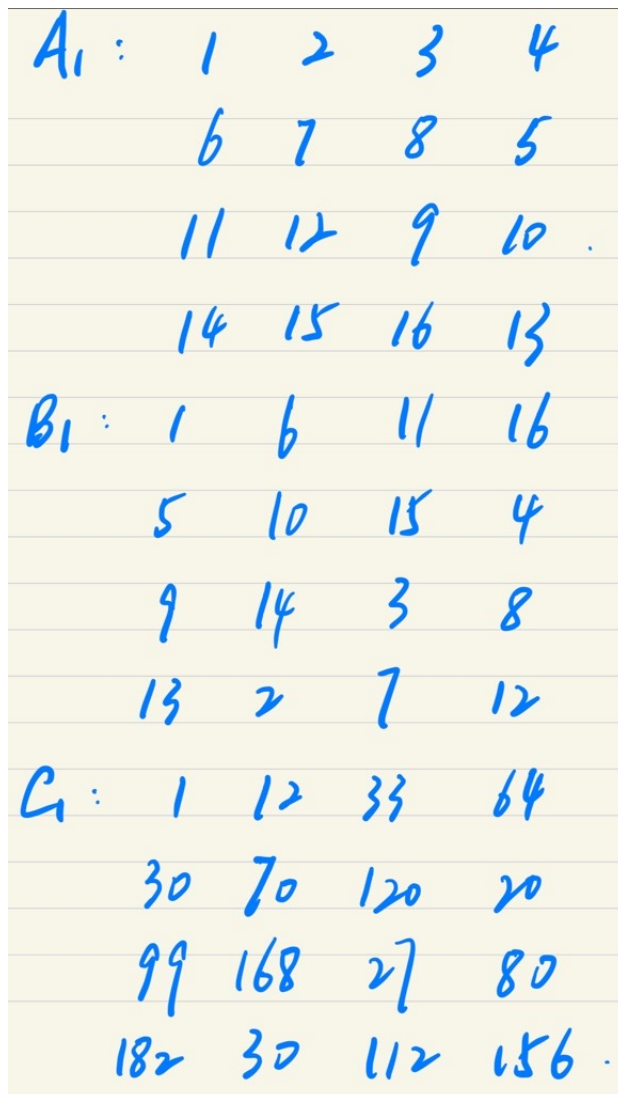 A1: 1 2 3 4
6 7 8 5
11 12 9 10 .
14 15 16 13
B1: 1 6 11 16
5 10 15 4
9 14 3 8
13 2 7 12
C1: 1 12 33 64
30 70 120 20
99 168 27 80
182 30 112 156 .